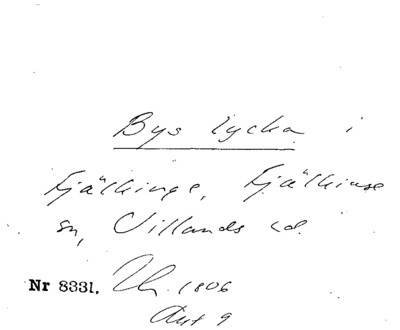 Bys lycka i
Fjälkinge, Fjälkinge
sn, Villands hd.
Nr 8331. Uh 1806
Akt 9